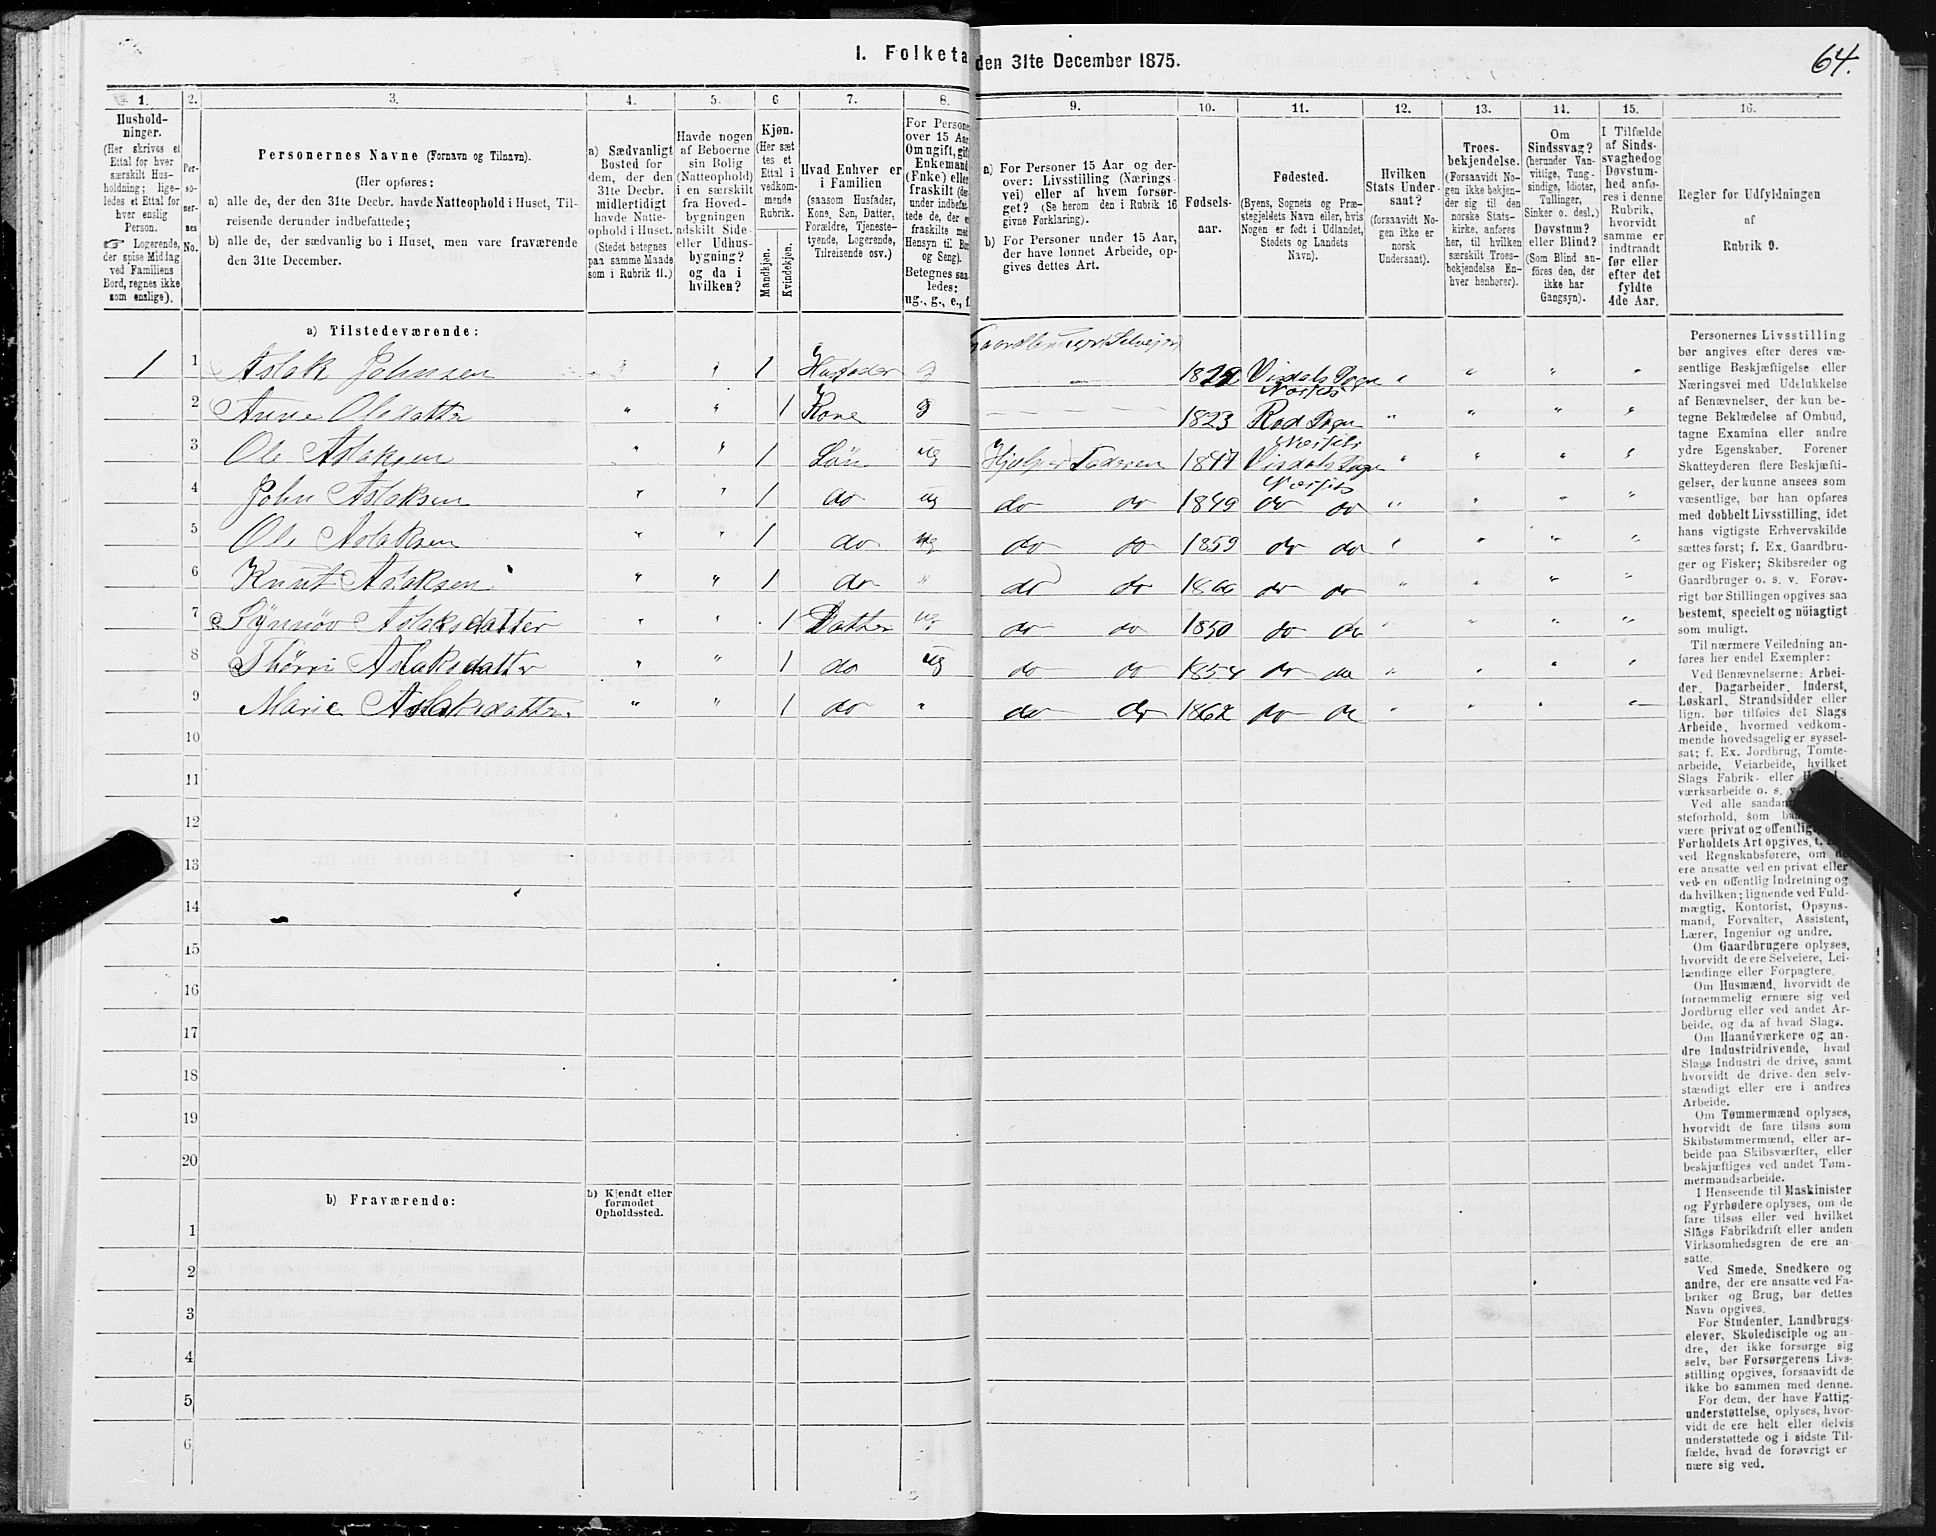 I. Folketa den 31te December 1875.
64.
1. 2. 3. 4. 5. 6 7. 8. 9. 10. 11. 12. 13. 14. 15. 16.
Hushold-
ninger.
(Her skrives et
Ettal for hver
særskilt Hus-
holdning; lige-
ledes et Ettal for
hver enslig
Person.
☞ Logerende,
der spise Middag
ved Familiens
Bord, regnes ikke
som enslige).
Per-
so-
ner-
nes
No.
Personernes Navne (Fornavn og Tilnavn).
(Her opføres:
a) alle de, der den 31te Decbr. havde Natteophold i Huset, Til-
reisende derunder indbefattede;
b) alle de, der sædvanlig bo i Huset, men vare fraværende
den 31te December.
a) Sædvanligt
Bosted for
dem, der den
31te Decbr.
midlertidigt
havde Natte-
ophold i Huset.
(Stedet betegnes
paa samme Maade
som i Rubrik 11.)
Havde nogen
af Beboerne
sin Bolig
(Natteophold)
i en særskilt
fra Hoved-
bygningen
adskilt Side-
eller Udhus-
bygning?
og da i
hvilken?
Kjøn.
(Her sæt
tes et
Ettal i
vedkom-
mende
Rubrik.
Mandkjøn.
Kvindekjøn.
Hvad Enhver er
i Familien
(saasom Husfader,
Kone, Søn, Datter,
Forældre, Tjeneste-
tyende, Logerende,
Tilreisende osv.)
For Persone
over 15 Aar
Om ugift, gift
Enkemand
(Enke) eller
fraskilt (der-
under indbefat-
tede de, der e
fraskilte med
Hensyn til Bo
og Seng).
Betegnes saa
ledes:
ug., g., e., f.
a) For Personer 15 Aar og der-
over: Livsstilling (Nærings-
vei) eller af hvem forsør-
get? (Se herom den i Rubrik 16
givne Forklaring).
b) For Personer under 15 Aar,
der have lønnet Arbeide, op-
gives dettes Art.
Fødsels-
aar.
Fødested.
(Byens, Sognets og Præ-
stegjeldets Navn eller, hvis
Nogen er født i Udlandet,
Stedets og Landets
Navn).
Hvilken
Stats Under-
saat?
(forsaavidt No-
gen ikke er
norsk
Undersaat).
Troes-
bekjendelse.
(Forsaavidt No-
gen ikke bekjen-
der sig til den
norske Stats-
kirke, anføres
her, til hvilken
særskilt Troes-
bekjendelse En-
hver henhører).
Om
Sindssvag?
(herunder Van-
vittige, Tung-
sindige, Idioter,
Tullinger,
Sinker o. desl.)
Døvstum?
eller Blind?
(Som Blind an-
føres den, der
ikke har
Gangsyn).
I Tilfælde
af Sinds-
svaghed og
Døvstum-
hed anfø-
res i denne
Rubrik,
hvorvidt
samme er
indtraadt
før eller
efter det
fyldte
4de Aar.
Regler for Udfyldningen
af
Rubrik 9.
a) Tilstedeværende:
Gaardbruger Selvejer
1 1 Aslak Johnsen " " 1 Husfader g 1822 Visdals Sogn " " " "
Næsset
2 Anne Olsdatter " " 1 Kone g 1823 Rød Sogn " " " "
Næsset
3 Ole Aslaksen " " 1 Søn ug Hjelper Faderen 1847 Visdals Sogn " " " "
Næsset
4 John Aslaksen " " 1 do ug do do 1849 do do " " " "
5 Ole Aslaksen " " 1 do ug do do 1859 do do " " " "
6 Knut Aslaksen " " 1 do " do do 1866 do do " " " "
7 Synnøv Aslaksdatter " " 1 Datter ug do do 1850 do do " " " "
8 Thørri Aslaksdatter " " 1 do ug do do 1854 do do " " " "
9 Marie Aslaksdatter " " 1 do " do do 1862 do do " " " "
10
11
12
13
14
15
16
17
18
19
20
b) Fraværende:
b) Kjendt eller
formodet
Opholdssted.
1
2
3
4
5
6
Personernes Livsstilling
bør angives efter deres væ-
sentlige Beskjæftigelse eller
Næringsvei med Udelukkelse
af Benævnelser, der kun be-
tegne Beklædelse af Ombud,
tagne Examina eller andre
ydre Egenskaber. Forener
Skatteyderen flere Beskjæfti-
gelser, der kunne ansees som
væsentlige, bør han opføres
med dobbelt Livsstilling, idet
hans vigtigste Erhvervskilde
sættes først; f. Ex. Gaardbru-
ger og Fisker; Skibsreder og
Gaardbruger o. s. v. Forøv-
rigt bør Stillingen opgives saa
bestemt, specielt og nöiagtigt
som muligt.
Til nærmere Veiledning an-
føres her endel Exempler:
Ved Benævnelserne: Arbei-
der, Dagarbeider, Inderst,
Løskarl, Strandsidder eller
lign. bør tilføies det Slags
Arbeide, hvormed vedkom-
mende hovedsagelig er syssel-
sat; f. Ex. Jordbrug, Tomte-
arbeide, Veiarbeide, hvilket
Slags Fabrik- eller
værksarbeide o. s.
Ved alle saadan
steforhold, som
være privat og offentlig
Forholdets Art opgives,
ved Regnskabsførere, om de
ere ansatte ved en privat eller
ved en offentlig Indretning og
da hvilken; lignende ved Fuld-
mægtig, Kontorist, Opsyns-
mand, Forvalter, Assistent,
Lærer, Ingeniør og andre.
Om Gaardbrugere oplyses,
hvorvidt de ere Selveiere, Lei-
lændinge eller Forpagtere.
Om Husmænd, hvorvidt de
fornemmelig ernære sig ved
Jordbrug eller ved andet Ar-
beide, og da af hvad Slags.
Om Haandværkere og an-
dre Industridrivende, hvad
Slags Industri de drive, samt
hvorvidt de drive den selv-
stændigt eller ere i andres
Arbeide.
Om Tømmermænd oplyses,
hvorvidt de fare tilsøs som
Skibstømmermænd, eller ar-
beide paa Skibsværfter, eller
beskjæftiges ved andet Tøm-
mermandsarbeide.
I Henseende til Maskinister
og Fyrbødere oplyses, om de
fare tilsøs eller ved hvilket
Slags Fabrikdrift eller anden
Virksomhedsgren de ere an-
satte.
Ved Smede, Snedkere og
andre, der ere ansatte ved Fa-
briker og Brug, bør dettes
Navn opgives.
For Studenter, Landbrugs-
elever, Skoledisciple og an-
dre, der ikke forsørge sig
selv, bør Forsørgerens Livs-
stilling opgives, forsaavidt de
ikke bo sammen med denne.
For dem, der have Fattig-
understøttelse, oplyses, hvor-
vidt de ere helt eller delvis
understøttede og i sidste Til-
fælde, hvad de forøvrigt er-
nære sig ved.